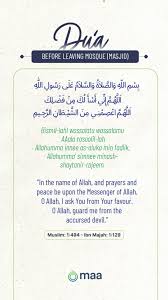 Du'a
BEFORE LEAVING MOSQUE (MASJID)
بِسْمِ اللَّهِ وَالصَّلَاةُ وَالسَّلَامُ عَلَى رَسُولِ اللَّهِ
اللَّهُمَّ إِنِّي أَسْأَلُكَ مِنْ فَضْلِكَ
اللَّهُمَّ اعْصِمْنِي مِنَ الشَّيْطَانِ الرَّجِيمِ
Bismil-lahi wassalatu wassalamu
ALaa rasoolil-lah
Allahumma innee as-aluka min fadlik,
Allahumma' simnee minash-
shaytanir-rajeem
"In the name of Allah, and prayers and
peace be upon the Messenger of Allah.
O Allah, I ask You from Your favour.
O Allah, guard me from the
accursed devil."
Muslim: 1:494 - Ibn Majah: 1:129
maa